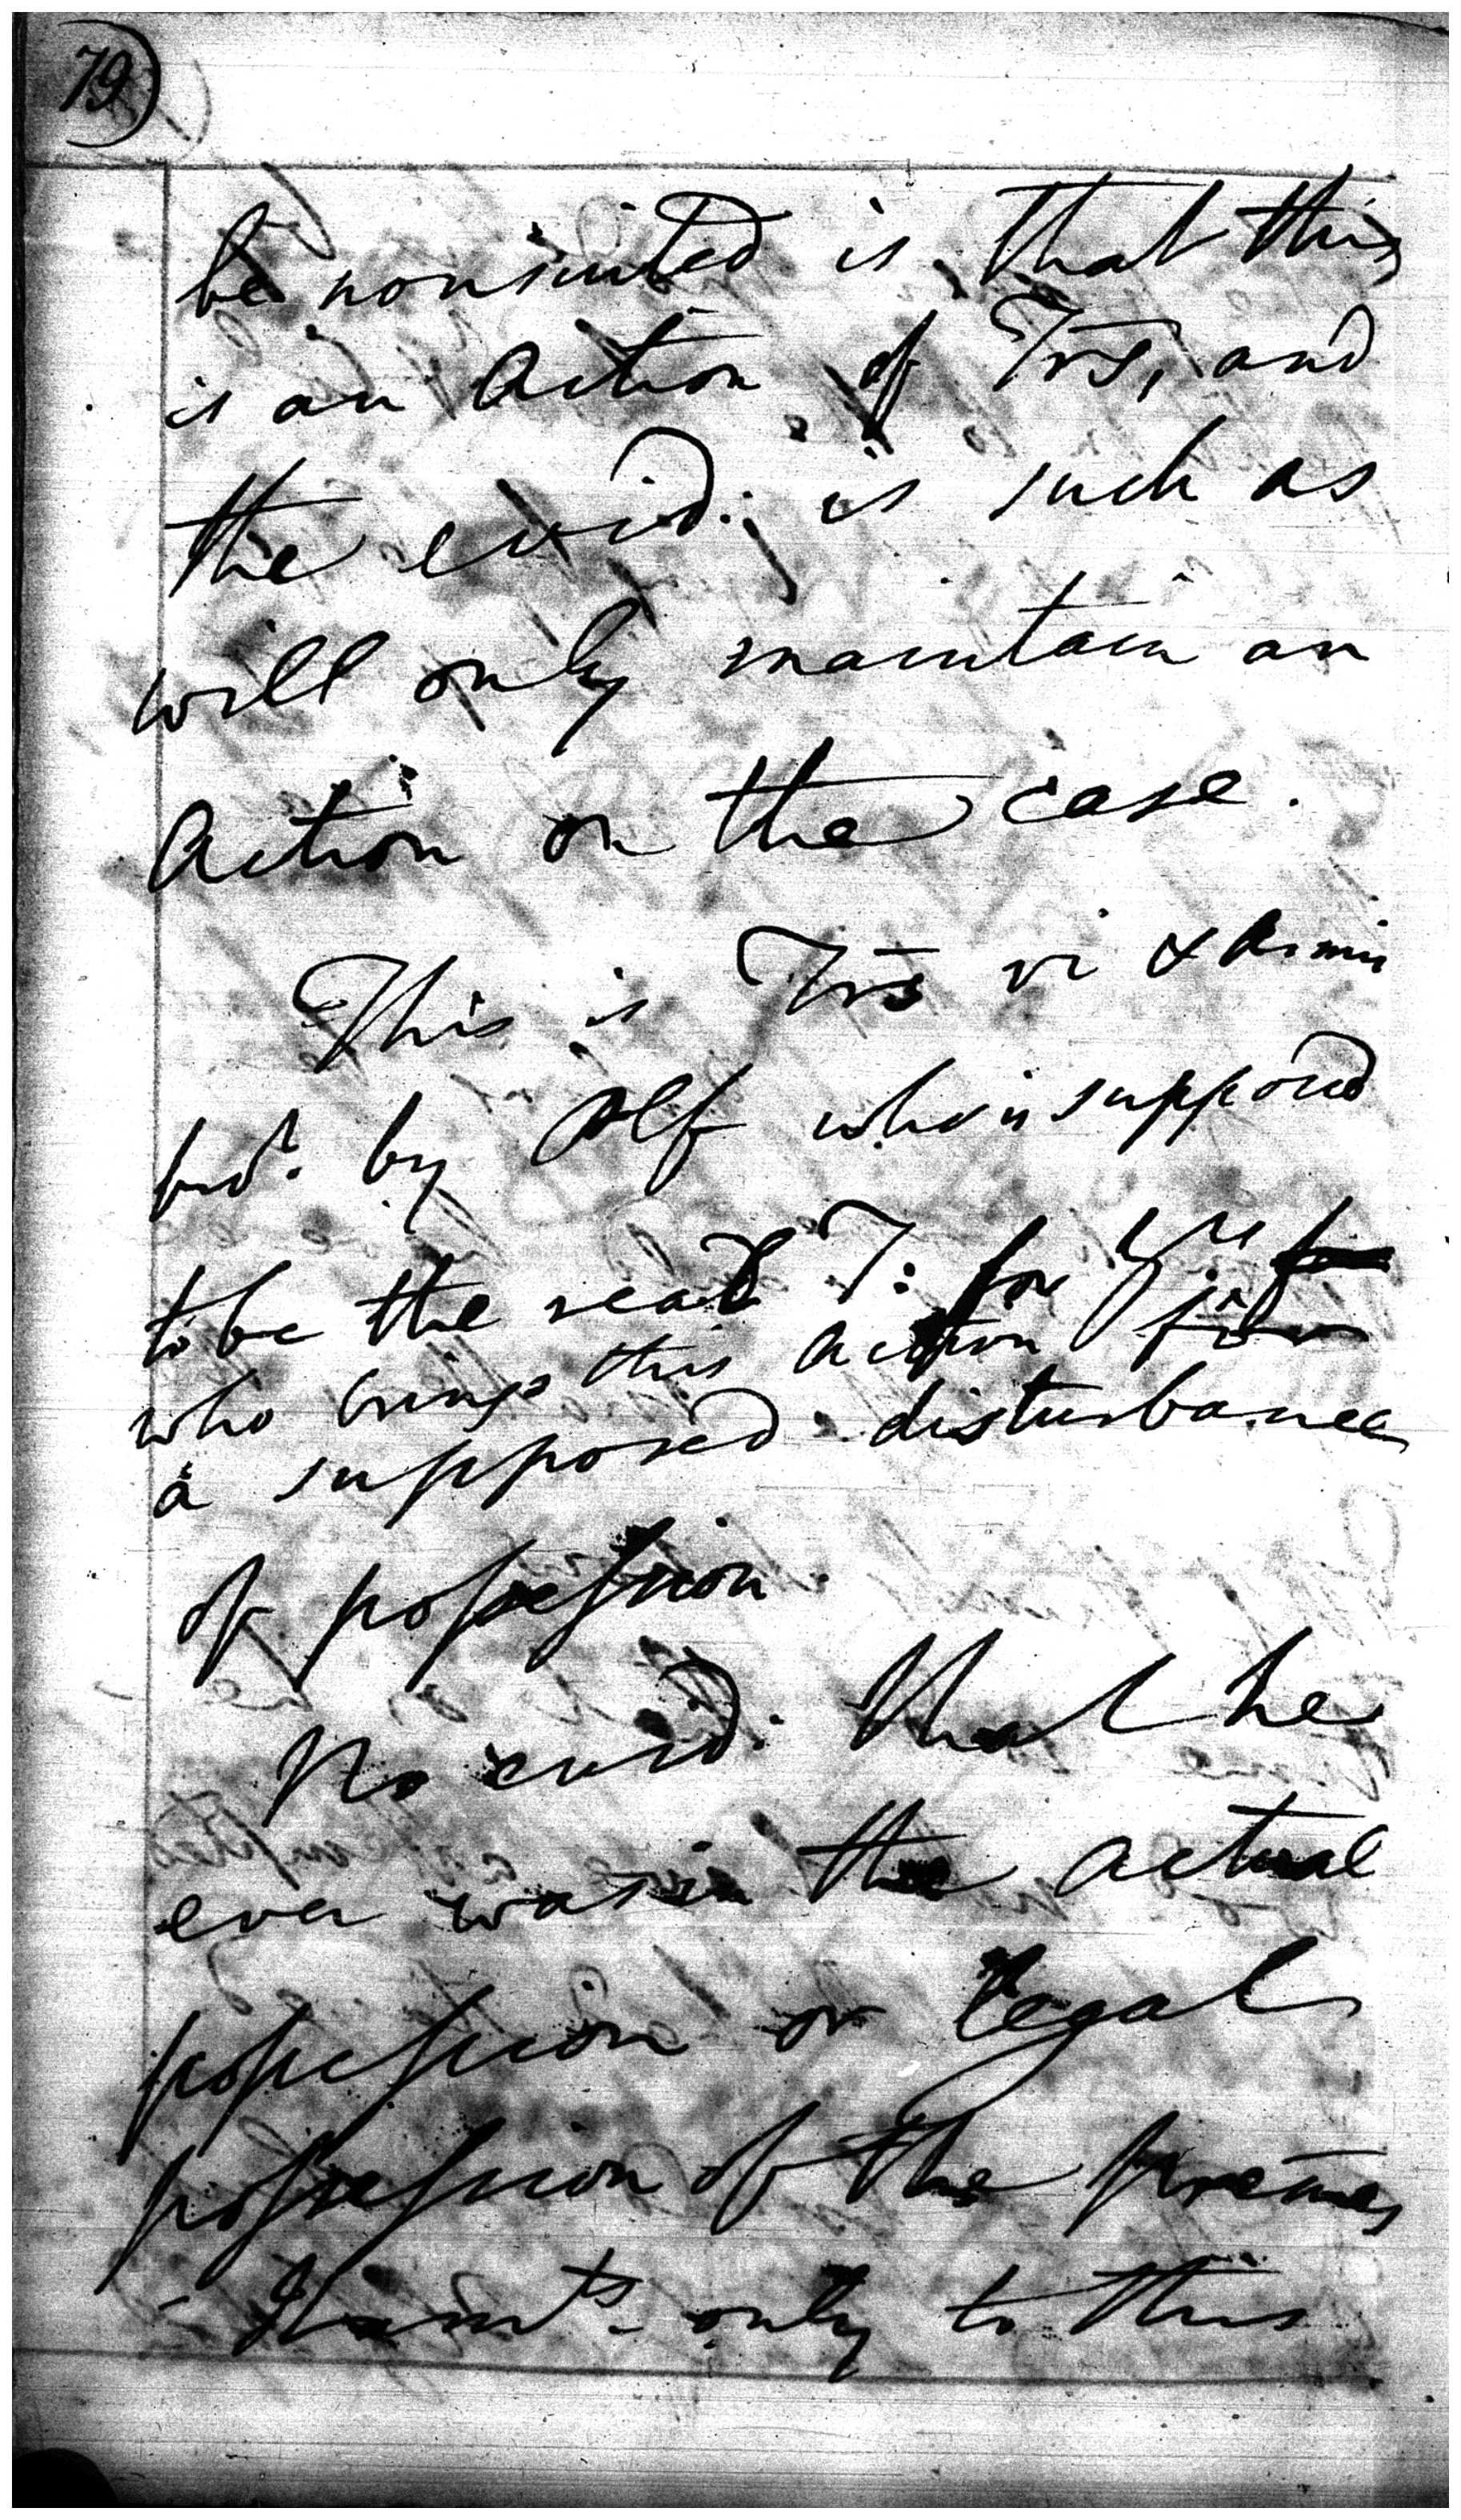 79)
be nonsuited is that this
is an Action of Trs, and
the evid. is such as
will only maintain an
Action on the case.
This is Trs vi & Armis
brot. by Plf who is supposed
to be the real T: for Yrs
who brings this action for
a supposed disturbance
of possession.
No evid. that he
ever was in the actual
possession or legal
possession of the premes
- only to this